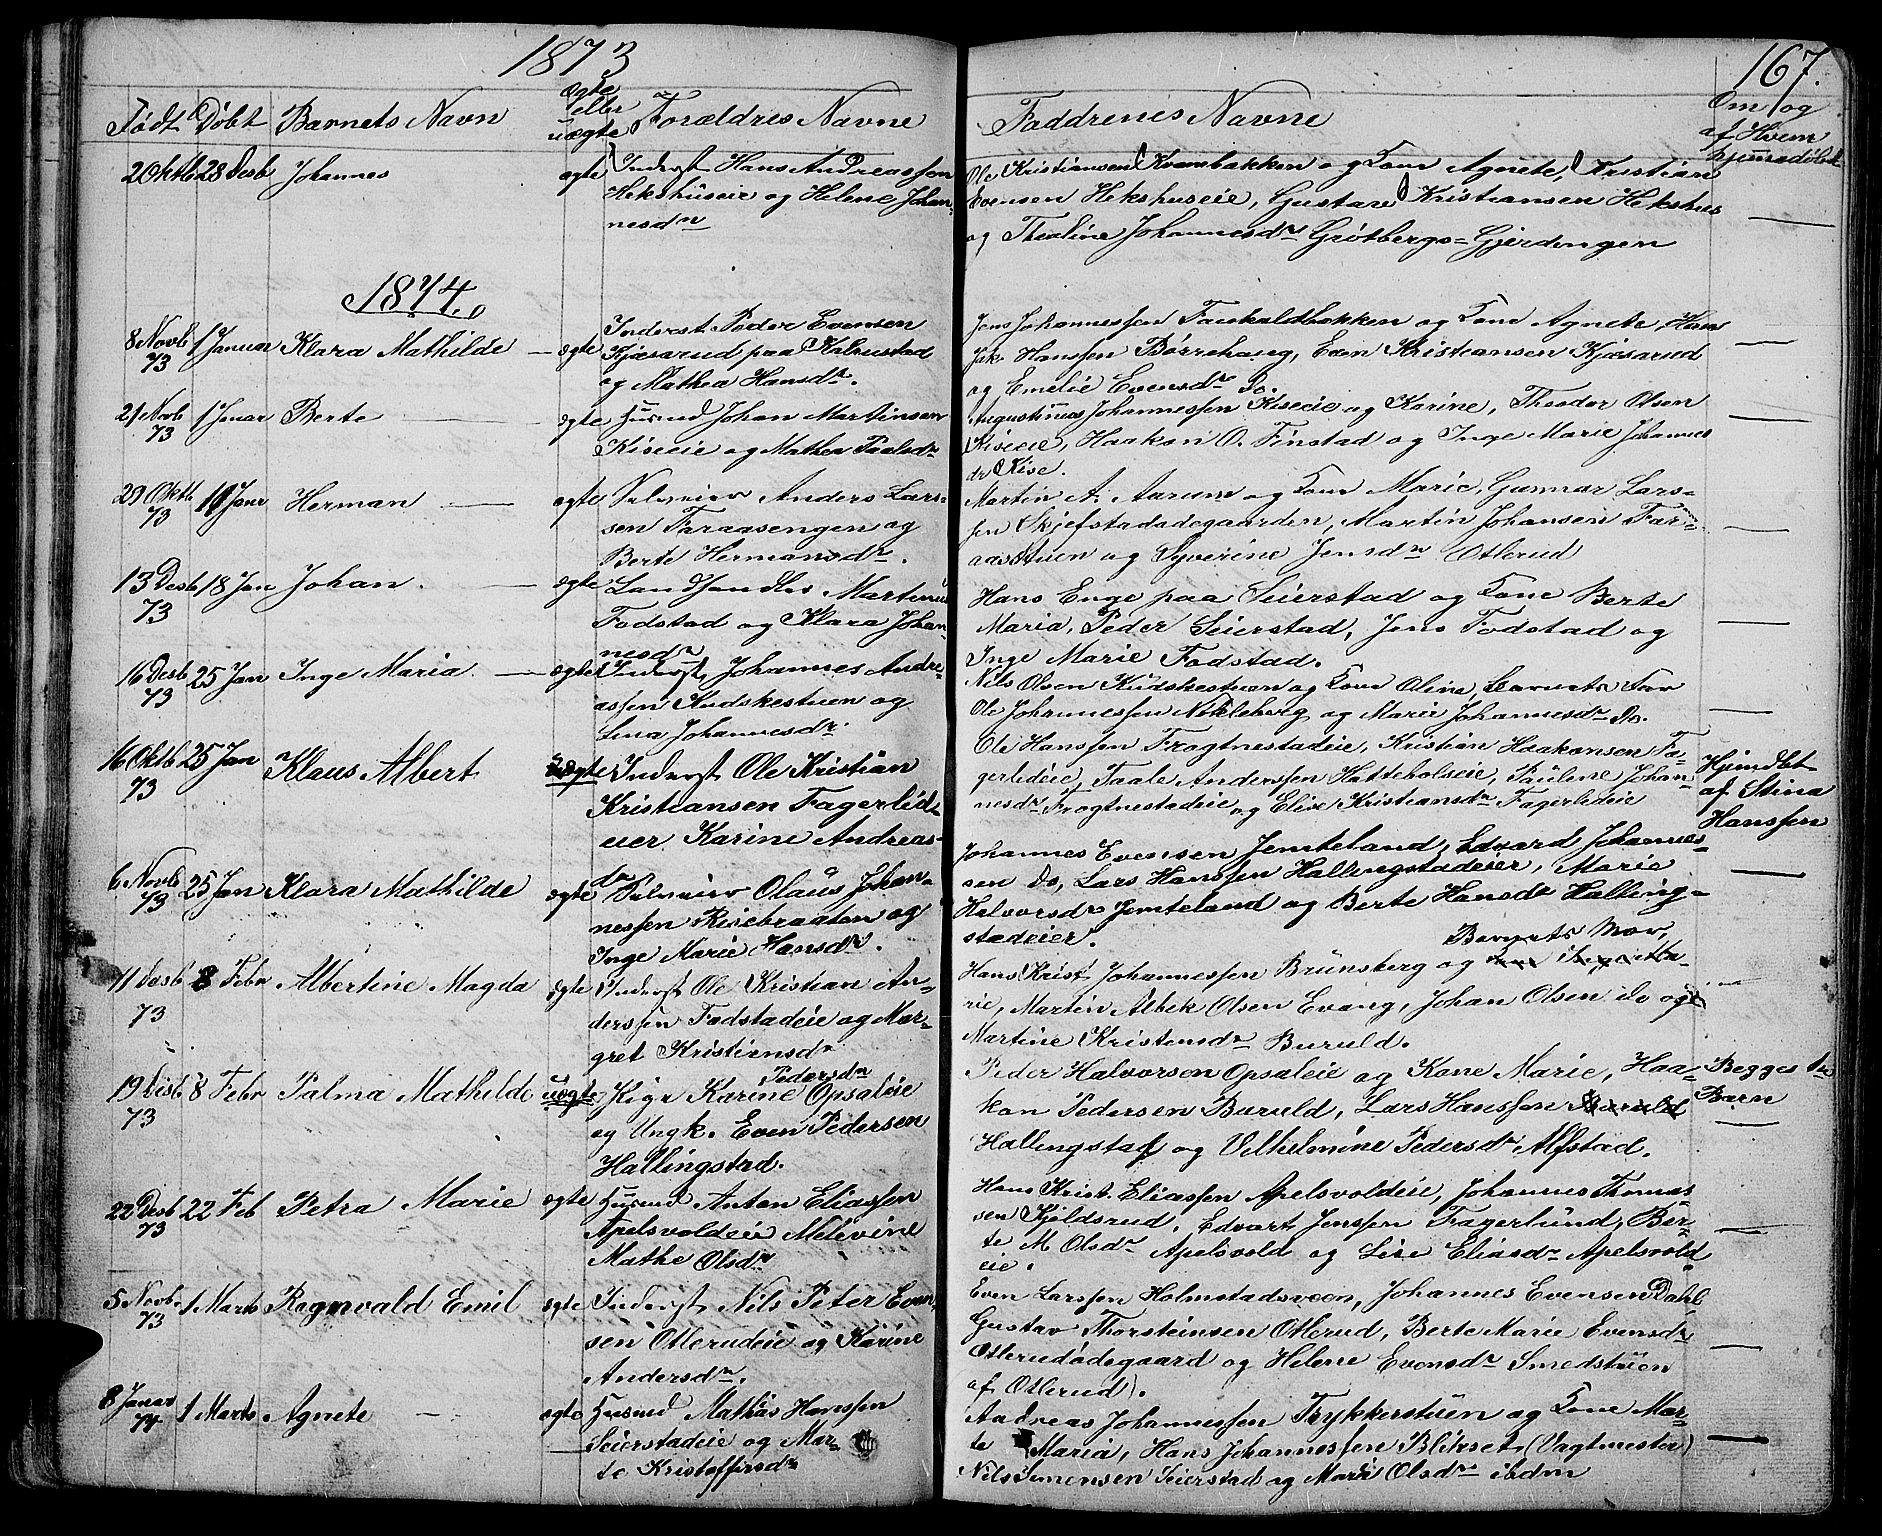 1873
167.
Født Døbt Barnets Navn ægte eller uægte Forældres Navne Faddrenes Navne Om og af Hvem hjemmedøbt
2 Oktb 28 Desb Johannes ægte Inderst Hans Andreassen
Hekshuseie og Helene Johan-
nesdr
Ole Kristiansen Kvarnbakken og Kone Agnete, Kristian
Evensen Hekshuseie, Gustav Kristiansen Hekshus
og Thealine Johannesdr Grøtbergs-Gjerdingen
1874.
8 Novb 73 1 Januar Klara Mathilde — ægte Inderst Peder Evensen
Kjæsarud paa Kalrustad
og Mathea Hansdr.
Jens Johannessen Fauskaltbakken og Kone Agnete, Hans
Jak. Hanssen Børrehaug, Even Kristiansen Kjæsarud
og Emelie Evensdr Do. —
21 Novb 73 1 Januar Berte — ægte Husmd Johan Martinsen
Kiseeie og Mathea Paalsdr
Augustinus Johannessen Kiseeie og Karine, Theodor Olsen
Kiseeie, Haakon O. Finstad og Inge Marie Johannes
dr Kise. —
29 Oktb 73 11 Janr Herman — ægte Selveier Anders Lars-
sen Faraasengen og
Berte Hermansdr.
Martin A. Aarum og Kone Marie, Gunnar Lars-
sen Skjefstadødegaarden, Martin Johansen Far-
aasstuen og Syverine Jensdr Otterud —
13 Desb 73 18 Jan Johan. — ægte Landhandler Martinus
Fodstad og Klara Johan-
nesdr
Hans Enge paa Seierstad og Kone Berte
Maria, Peder Seierstad, Jens Fodstad og
Inge Marie Fodstad. —
16 Desb 73 25 Jan Inge Maria. — ægte Inderst Johannes Andre-
assen Kudskestuen og
Lina Johannesdr.
Nils Olsen Kudskestuen og Kone Olina, Barnets Far
Ole Johannessen Nøkleberg og Marie Johannesdr Do. —
16 Oktb 73 25 Jan Klaus Albert uægte Inderst Ole Kristian
Kristiansen Fagerlid-
eier Karine Andreas-
dr
Ole Hanssen Frogtnestadeie, Kristian Haakonsen Fa-
gerlideie, Paale Anderssen Hatteholseie, Pauline Johan-
nesdr Frogtnestadeie og Elise Kristiansdr Fagerlideie
Hjemdbt
af Stina
Hanssen
6 Novb 73 25 Jan Klara Mathilde ægte Selveier Olaus Johan-
nessen Risebraaten og
Inge Marie Hansdr.
Johannes Evensen Jemteland, Edvard Johannes-
sen Do, Lars Hanssen Hallingstadeier, Marie
Halvorsdr Jemteland og Berte Hansdr Halling-
stadeier. —
11 Desb 73 8 Febr Albertine Magda ægte Inderst Ole Kristian An-
derssen Fodstadeie og Mar-
gret Kristiansdr
Barnets Mor,
Hans Krist Johannessen Brunsberg og Kone Inge Ma-
rie, Martin Albek Olsen Evang, Johan Olsen Do og
Martine Kristensdr Buruld. —
19 Desb 73 8 Febr Palma Mathilde uægte Pige Karine Pedersdr Opsaleie
og Ungk. Even Pedersen
Hallingstad.
Peder Halvorsen Opsaleie og Kone Marie, Haa-
kon Pedersen Buruld, Lars Hanssen Buruld
Hallingstad og Vilhelmine Pedersdr Alfstad.
Begges 1te
Barn
—
22 Desb 73 22 Feb Petra Marie ægte Husmd Anton Eliassen
Apelsvoldeie Melivine
Mathe Olsdr
Hans Krist. Eliassen Apelsvoldeie, Johannes Thomas-
sen Kjeldsrud, Edvart Jenssen Fagerlund, Ber-
te M Olsdr Apelsvold og Lise Eliasdr Apelsvold
eie. —
5 Novb. 73 1 Marts Ragnvald Emil ægte Inderst Nils Peter Even-
sen Otterudeie og Karine
Andersdr.
Even Larssen Holmstadsveen, Johannes Evensen Dahl
Gustav Thorsteinsen Otterud, Berte Marie Evensdr
Otterudødegaard og Helene Evensdr Smedstuen
af Otterud). —
8 Januar 74 1 Marts Agnete — ægte Husmd Mathias Hanssen
Seierstadeie og Mar-
te Kristoffersdr
Andreas Johannessen Trykkerstuen og Kone Mar-
te Maria, Hans Johannessen Blikset (Vagtmester)
Nils Simensen Seierstad og Mari Olsdr ibdm —